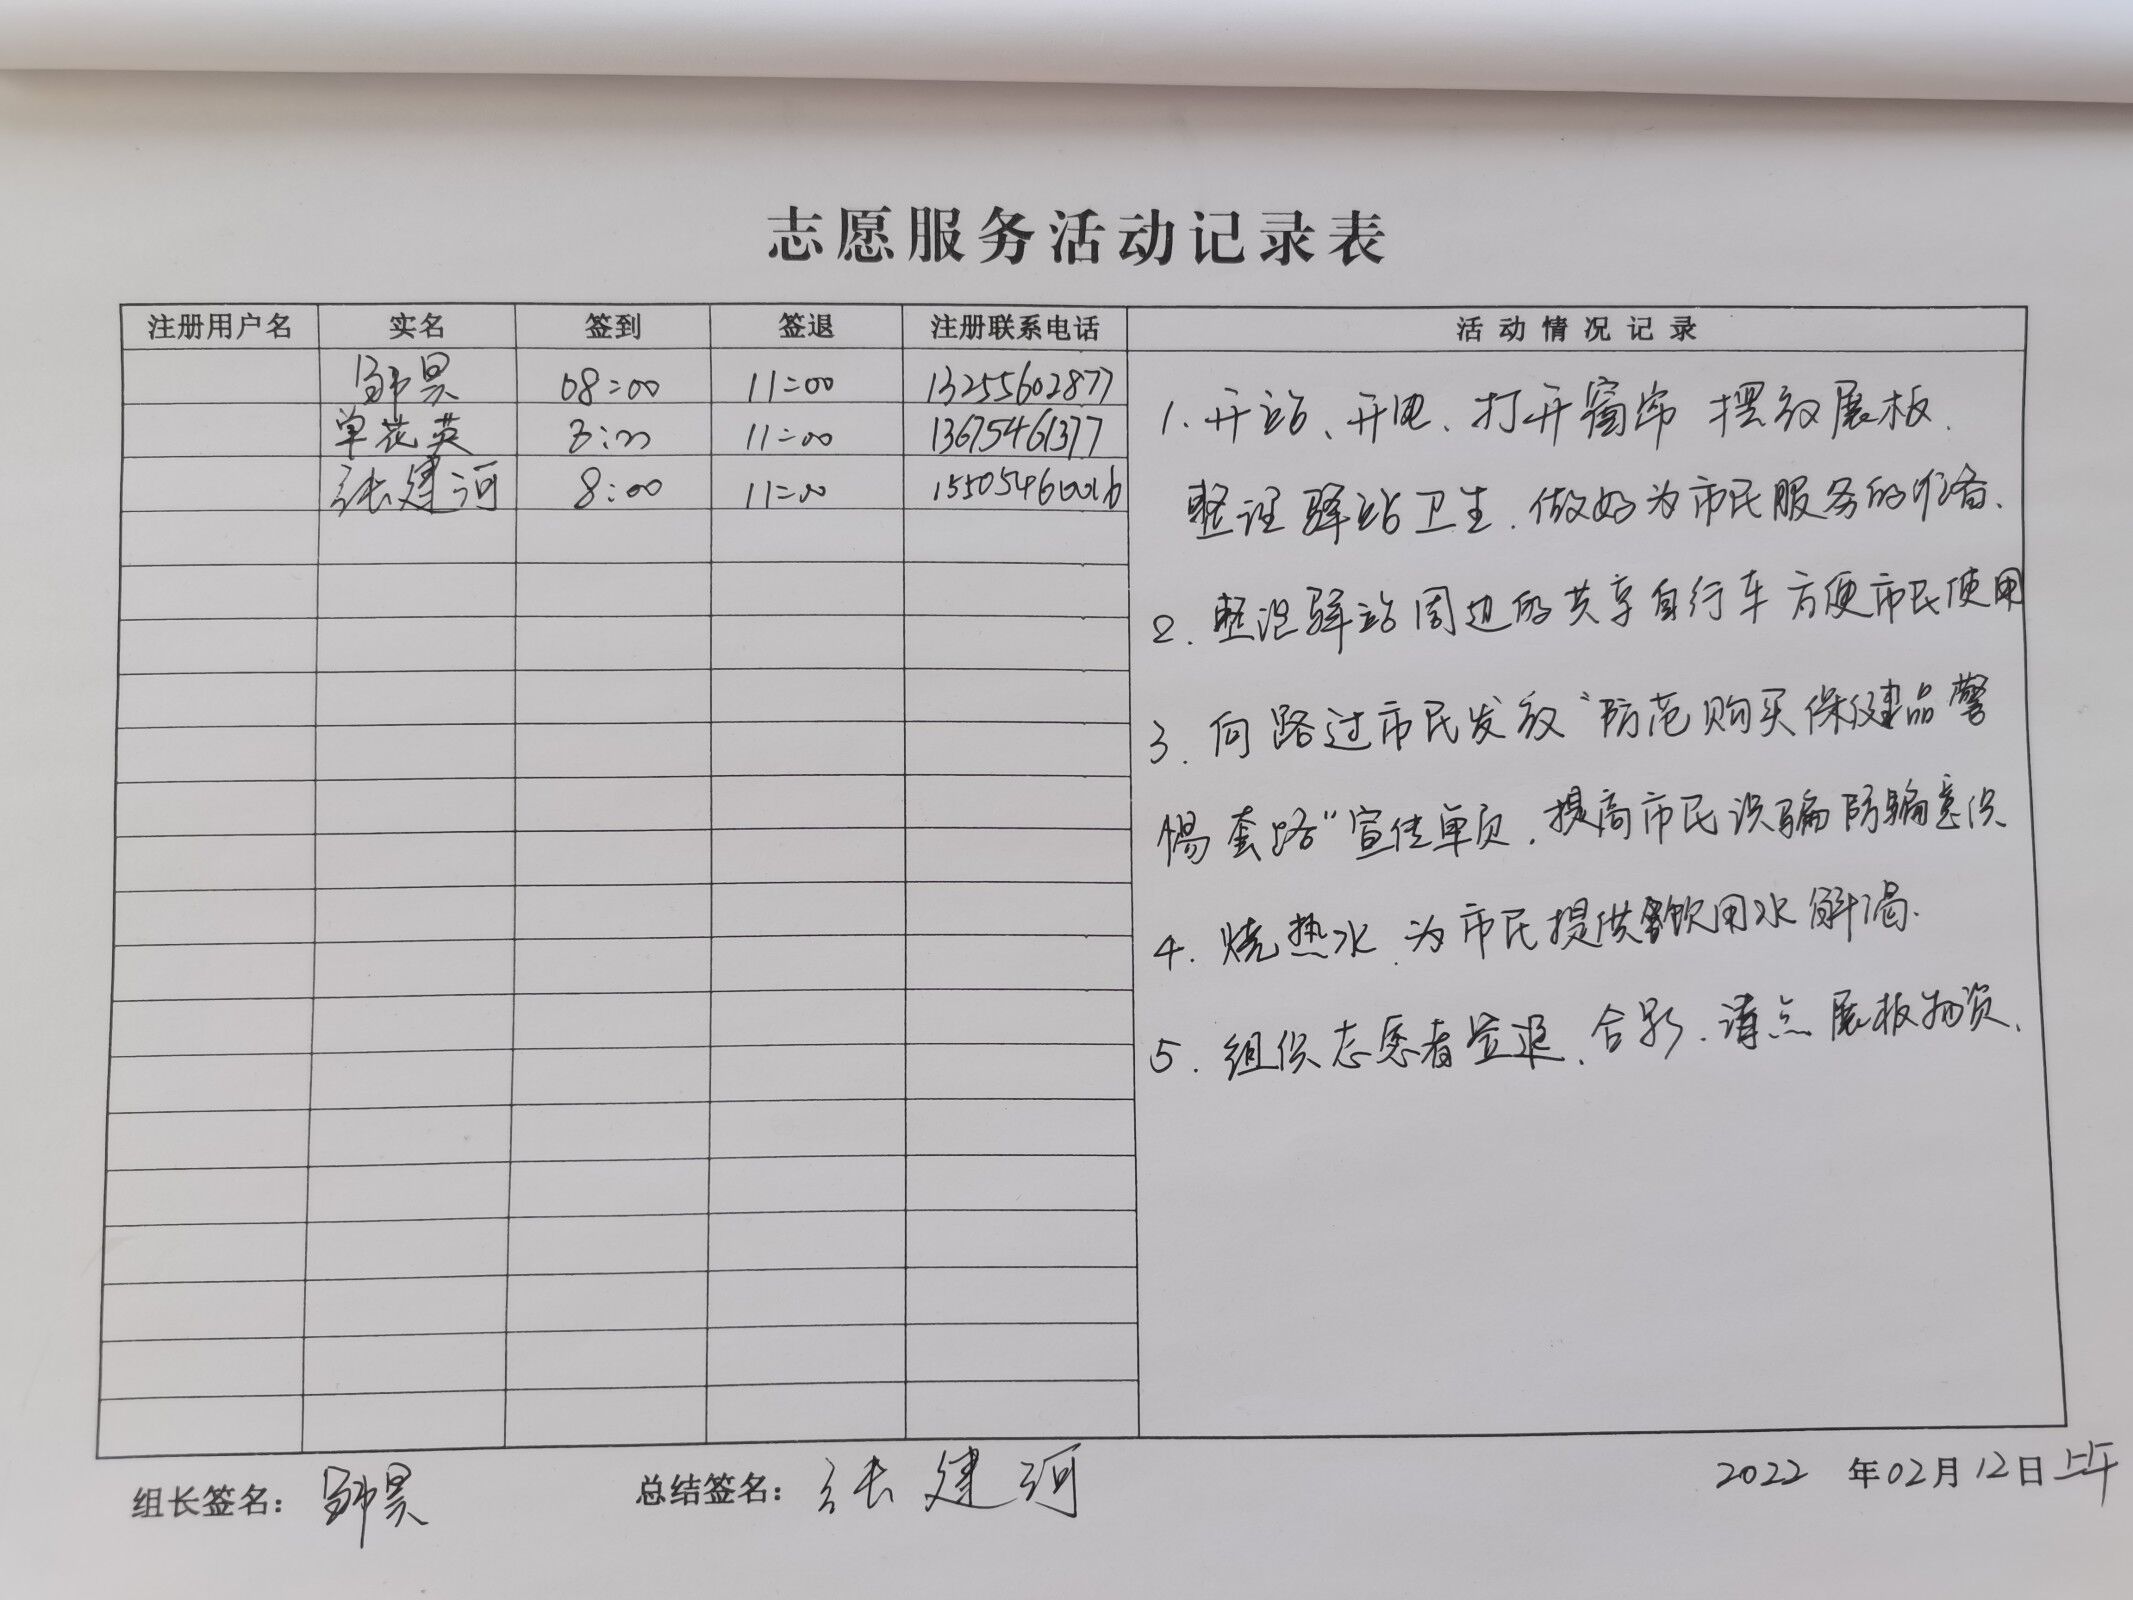 志愿服务活动记录表
注册用户名 实名 签到 签退 注册联系电话 活动情况记录
昊 08:00 11:00 13255602877
单花英 8:00 11:00 13675461377
张建河 8:00 11:00 15505460016
1. 开站、开电、打开窗帘 摆放展板.
整理驿站卫生.做好为市民服务的准备.
2. 整理驿站周边的共享自行车 方便市民使用
3. 向路过市民发放“防范购买保健品警
惕套路”宣传单页.提高市民识骗防骗意识
4. 烧热水.为市民提供饮用水解渴.
5. 组织志愿者签退.合影.清点展板物资.
组长签名: 昊 总结签名: 张建河 2022 年02月12日上午